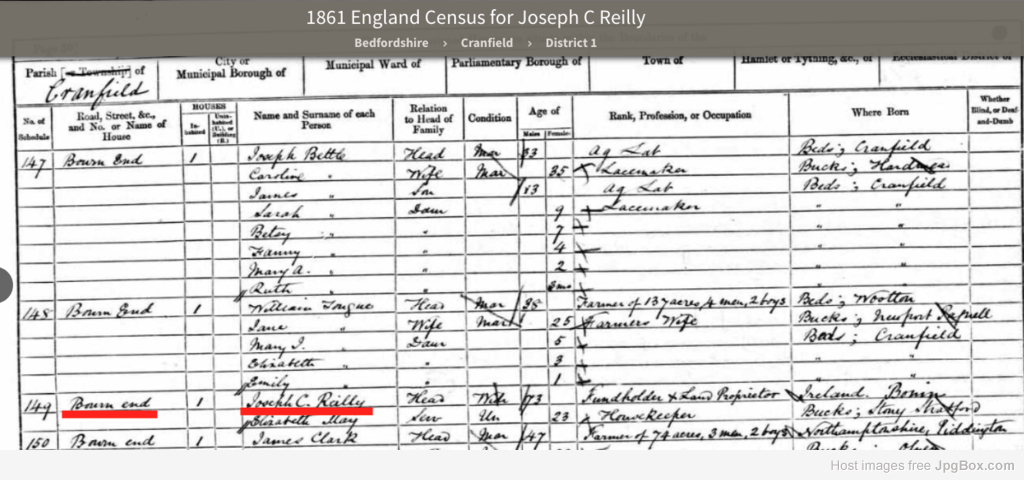 1861 England Census for Joseph C Reilly
Bedfordshire › Cranfield › District 1
Parish [or Township] of
City or
Municipal Borough of
Municipal Ward of
Parliamentary Borough of
Town of
Hamlet or Tything, &c., of
Ecclesiastical District of
Cranfield
No. of Schedule
Road, Street, &c., and No. or Name of House
HOUSES
In-habited
Unin-habited (U.), or Building (B.)
Name and Surname of each Person
Relation to Head of Family
Condition
Age of
Males
Females
Rank, Profession, or Occupation
Where Born
Whether Blind, or Deaf-and-Dumb
147 Bourn End 1 Joseph Bettle Head Mar 33 Ag Lab Beds; Cranfield
Caroline " Wife Mar 35 Lacemaker Bucks;
James " Son 13 Ag Lab Beds; Cranfield
Sarah " Daur 9 Lacemaker " "
Betsy " " 7 " "
Fanny " " 4 " "
Mary A. " " 2 " "
Ruth " " " "
148 Bourn End 1 William Tongue Head Mar 38 Farmer of 137 acres, 4 men, 2 boys Beds; Wootton
Jane " Wife Mar 25 Farmers Wife Bucks; Newport Pagnell
Mary J. " Daur 5 Beds; Cranfield
Elizabeth " " 3 " "
Emily " " 1 " "
149 Bourn end 1 Joseph C. Reilly Head Wid 73 Fundholder & Land Proprietor Ireland.
Elizabeth May Serv Un 23 Housekeeper Bucks; Stony Stratford
150 Bourn end 1 James Clark Head Mar 47 Farmer of 74 acres, 3 men, 2 boys Northamptonshire, Piddington
Host images free JpgBox.com